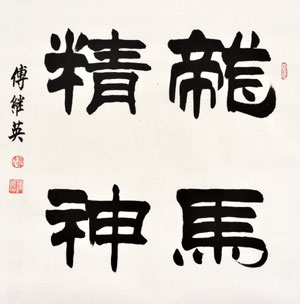 龍馬
精神
傅继英